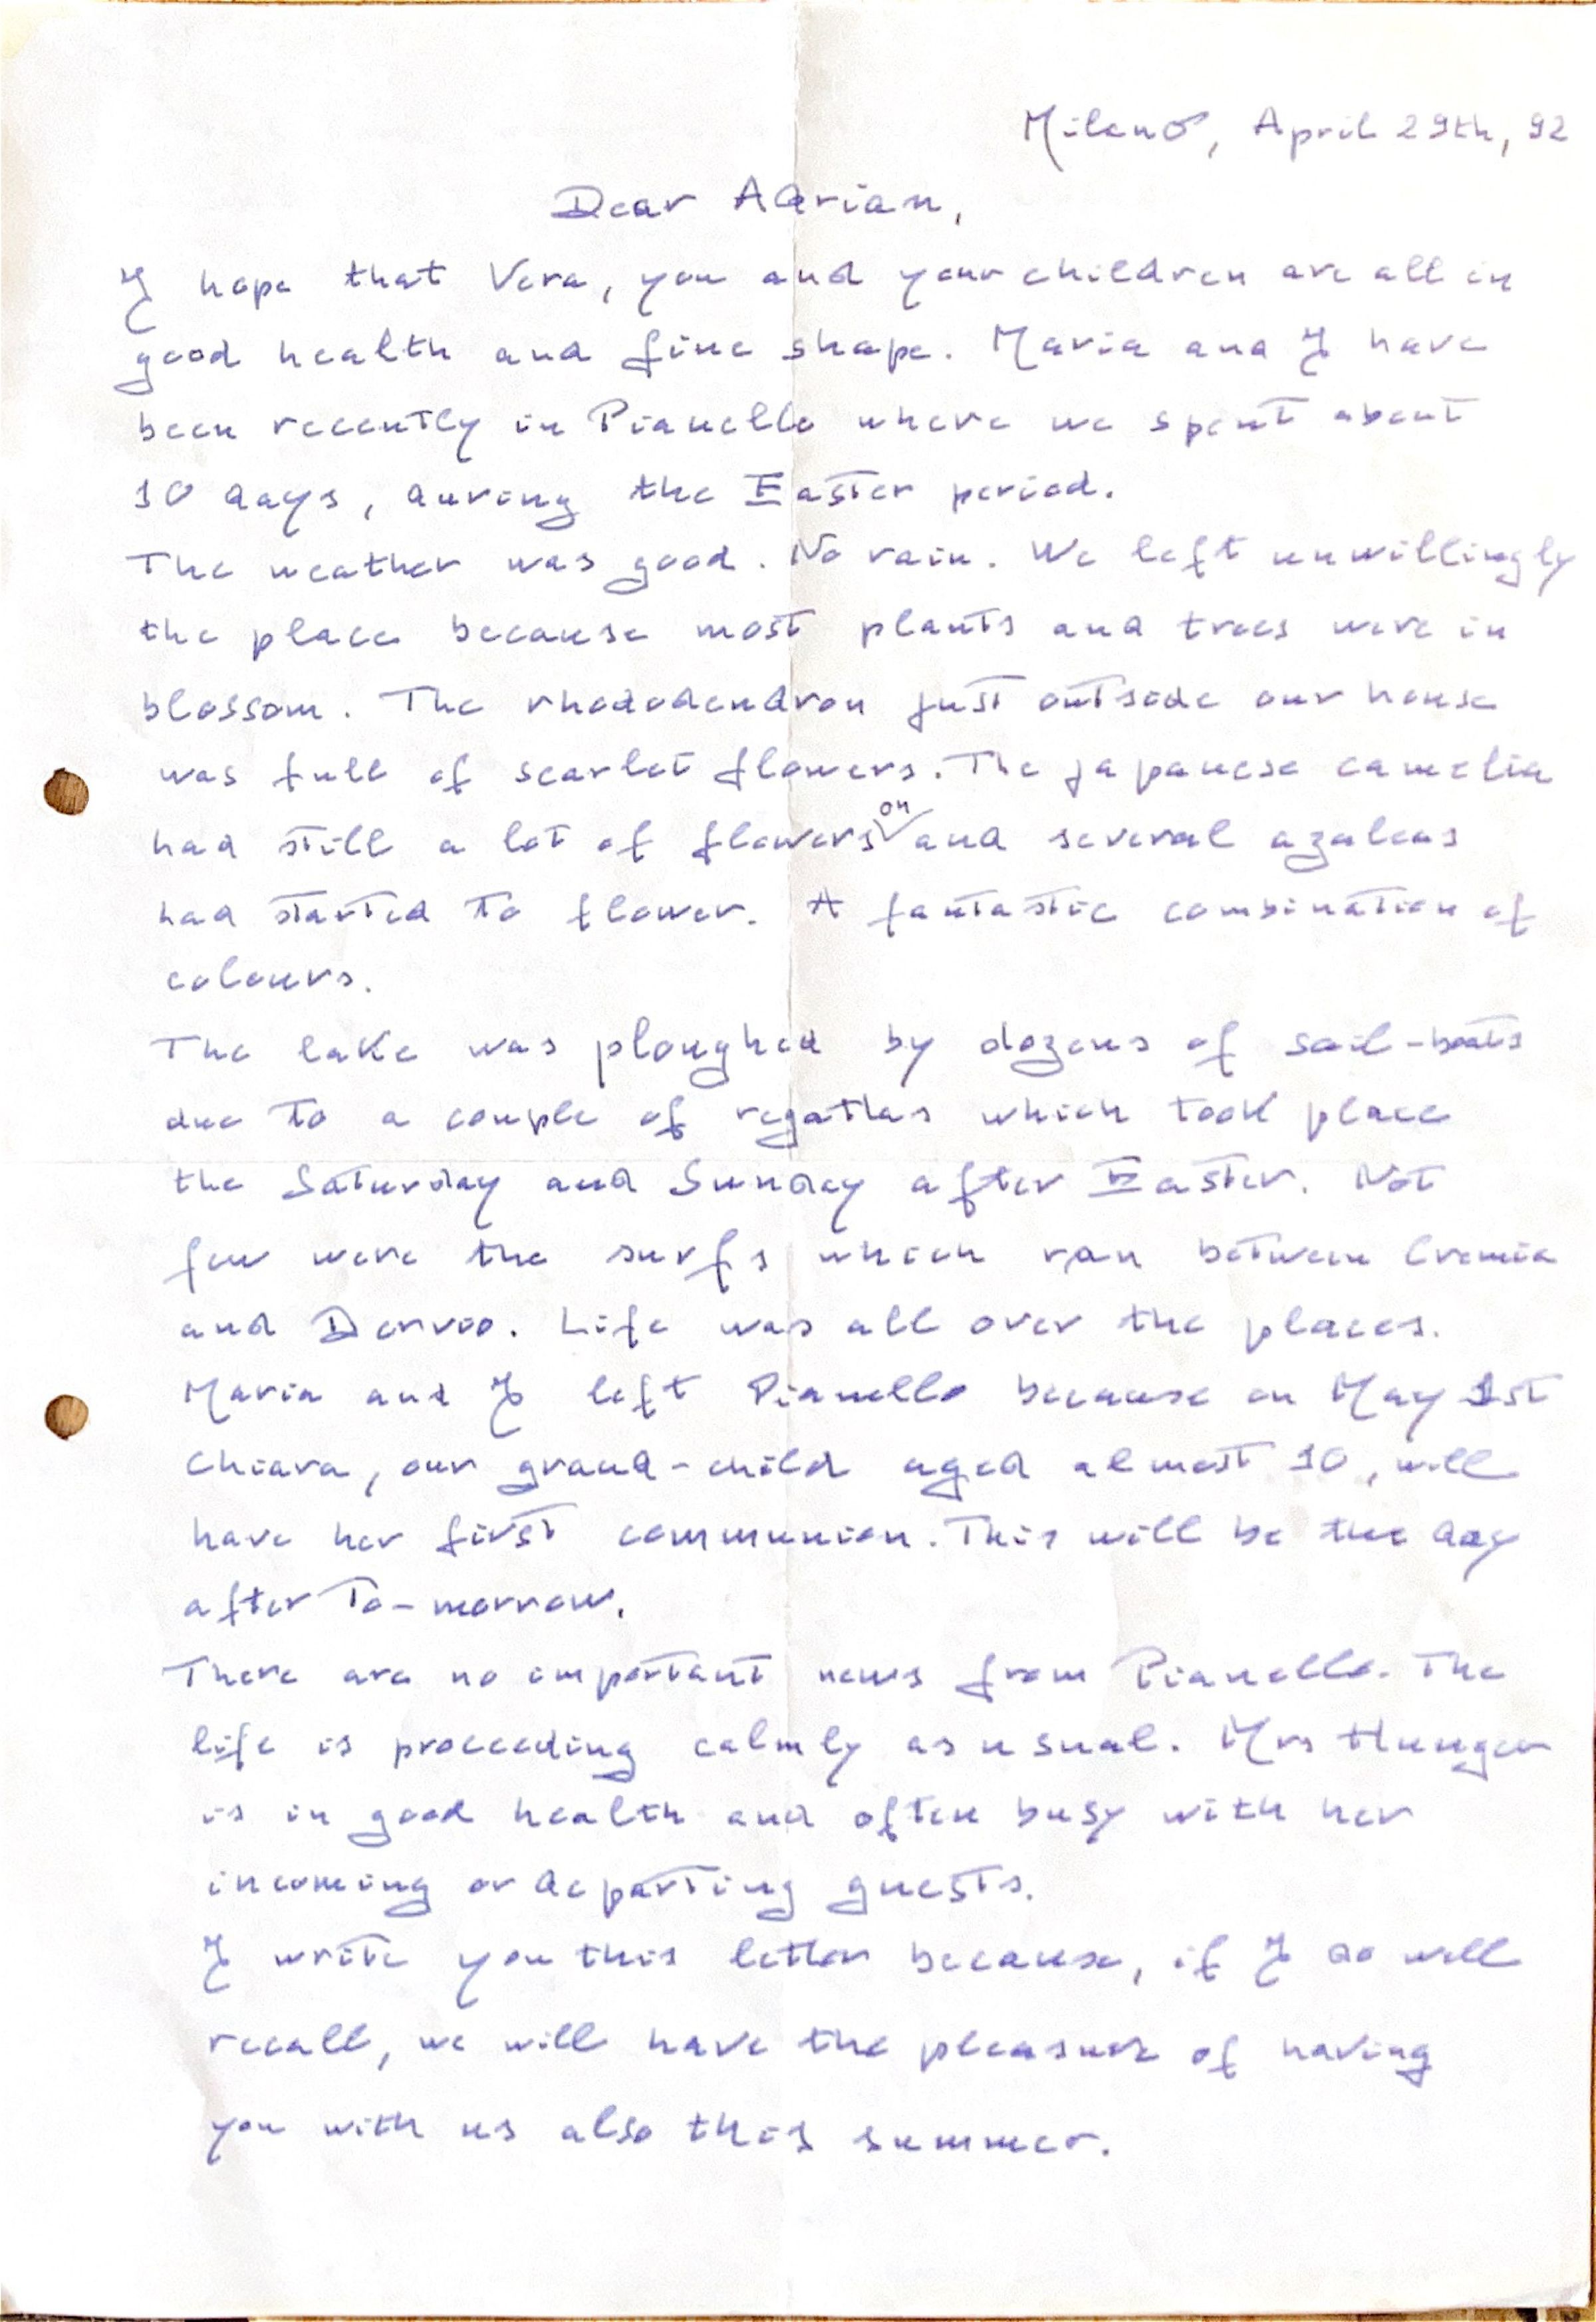 Milano, April 29th, 92
Dear Adrian,
I hope that Vera, you and your children are all in
good health and fine shape. Maria and I have
been recently in Pianello where we spent about
10 days, during the Easter period.
The weather was good. No rain. We left unwillingly
the place because most plants and trees were in
blossom. The rhododendron just outside our house
was full of scarlet flowers. The japanese camelia
had still a lot of flowers on and several azaleas
had started to flower. A fantastic combination of
colours.
The lake was ploughed by dozens of sail-boats
due to a couple of regattas which took place
the Saturday and Sunday after Easter. Not
few were the surfs which ran between Cremia
and Dervio. Life was all over the places.
Maria and I left Pianello because on May 1st
Chiara, our grand-child aged almost 10, will
have her first communion. This will be the day
after to-morrow.
There are no important news from Pianello. The
life is proceeding calmly as usual. Mrs Hunger
is in good health and often busy with her
incoming or departing guests.
I write you this letter because, if I do well
recall, we will have the pleasure of having
you with us also this summer.